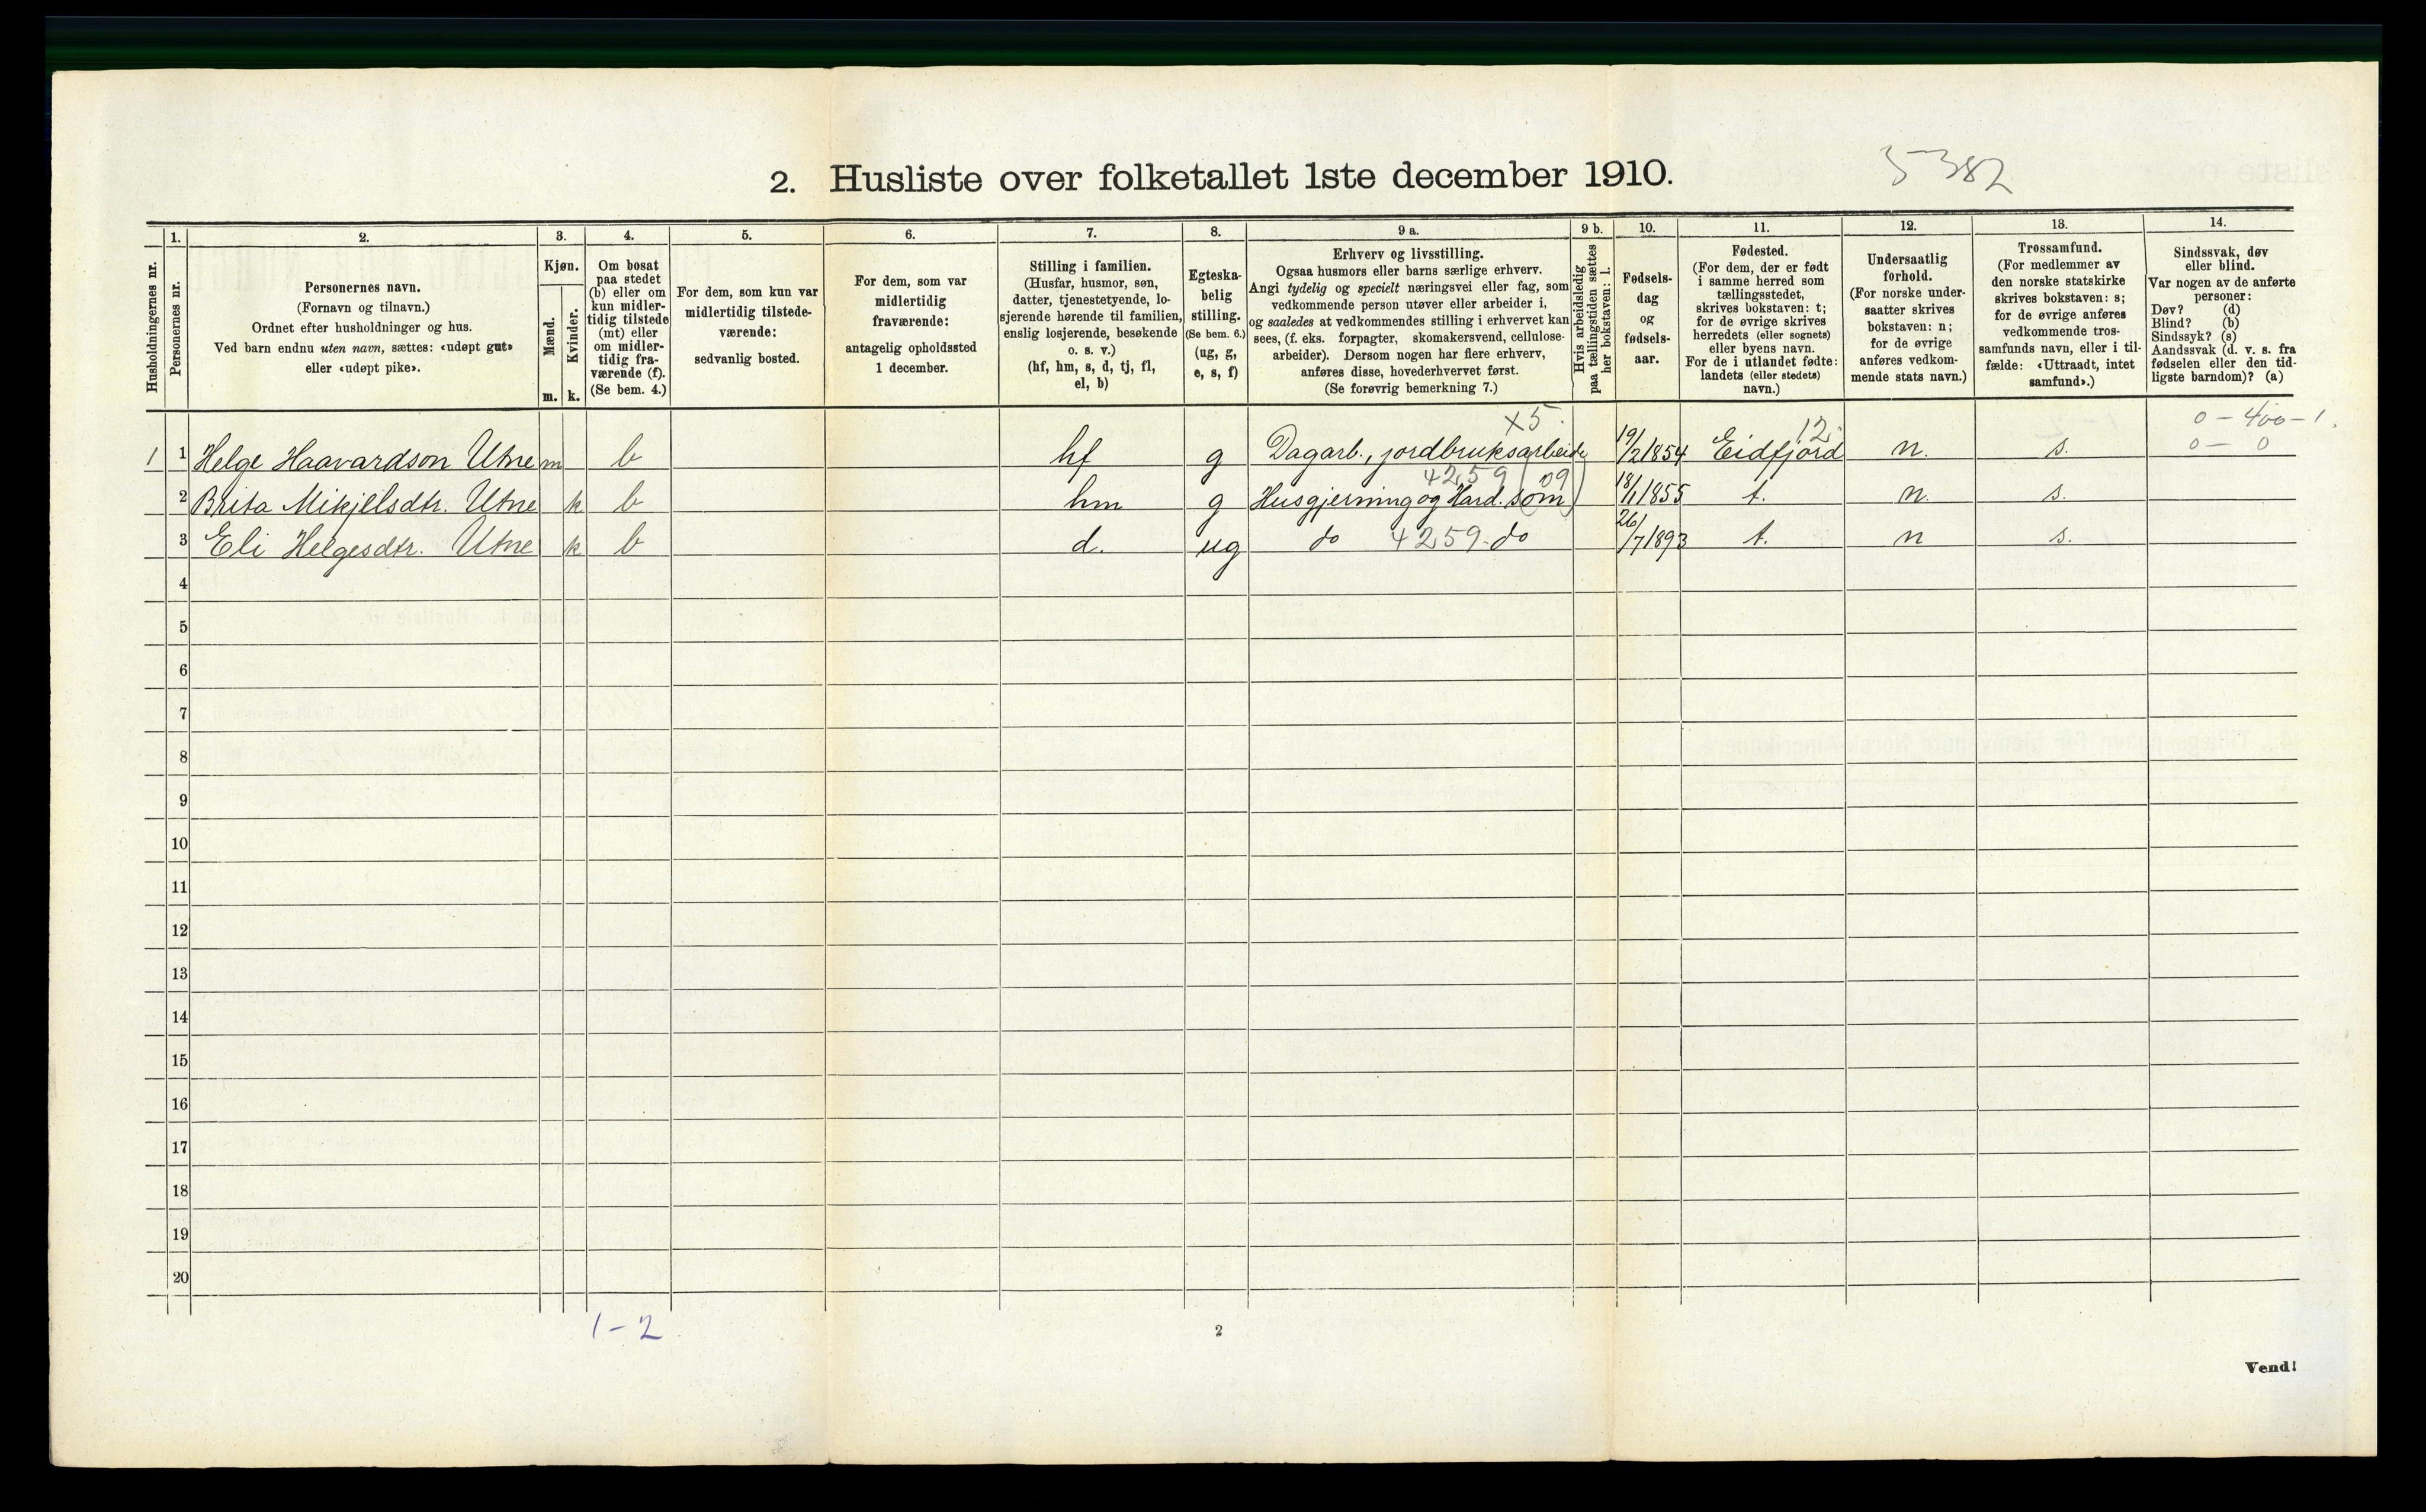 2. Husliste over folketallet 1ste december 1910.
5382
Husholdningernes nr.
1.
Personernes nr.
2.
Personernes navn.
(Fornavn og tilnavn.)
Ordnet efter husholdninger og hus.
Ved barn endnu uten navn, sættes: «udøpt gut»
eller «udøpt pike».
3.
Kjøn.
Mænd.
m.
Kvinder.
k.
4.
Om bosat
paa stedet
(b) eller om
kun midler-
tidig tilstede
(mt) eller
om midler-
tidig fra-
værende (f).
(Se bem. 4.)
5.
For dem, som kun var
midlertidig tilstede-
værende:
sedvanlig bosted.
6.
For dem, som var
midlertidig
fraværende:
antagelig opholdssted
1 december.
7.
Stilling i familien.
(Husfar, husmor, søn,
datter, tjenestetyende, lo-
sjerende hørende til familien,
enslig losjerende, besøkende
o. s. v.)
(hf, hm, s, d, tj, fl,
el, b)
8.
Egteska-
belig
stilling.
(Se bem. 6.)
(ug, g,
e, s, f)
9 a.
Erhverv og livsstilling.
Ogsaa husmors eller barns særlige erhverv.
Angi tydelig og specielt næringsvei eller fag, som
vedkommende person utøver eller arbeider i,
og saaledes at vedkommendes stilling i erhvervet kan
sees, (f. eks. forpagter, skomakersvend, cellulose-
arbeider). Dersom nogen har flere erhverv,
anføres disse, hovederhvervet først.
(Se forøvrig bemerkning 7.)
9 b.
Hvis arbeidsledig
paa tællingstiden sættes
her bokstaven: l.
10.
Fødsels-
dag
og
fødsels-
aar.
11.
Fødested.
(For dem, der er født
i samme herred som
tællingsstedet,
skrives bokstaven: t;
for de øvrige skrives
herredets (eller sognets)
eller byens navn.
For de i utlandet fødte:
landets (eller stedets)
navn.)
12.
Undersaatlig
forhold.
(For norske under-
saatter skrives
bokstaven: n;
for de øvrige
anføres vedkom-
mende stats navn.)
13.
Trossamfund.
(For medlemmer av
den norske statskirke
skrives bokstaven: s;
for de øvrige anføres
vedkommende tros-
samfunds navn, eller i til-
fælde: «Uttraadt, intet
samfund».)
14.
Sindssvak, døv
eller blind.
Var nogen av de anførte
personer:
Døv? (d)
Blind? (b)
Sindssyk? (s)
Aandssvak (d. v. s. fra
fødselen eller den tid-
ligste barndom)? (a)
x5. 12. 0 - 400 - 1.
1 1 Helge Haavardson Utne m b hf g Dagarb., jordbruksarbeide 19/2 1854 Eidfjord n. s. 0 - 0
4259 (09)
2 Brita Mikjelsdtr. Utne k b hm g Husgjerning og Hard. søm 18/1 1855 t. n. s.
3 Eli Helgesdtr. Utne k b d. ug do 4259 do 26/7 1893 t. n s.
4
5
6
7
8
9
10
11
12
13
14
15
16
17
18
19
20
1-2
2
Vend!